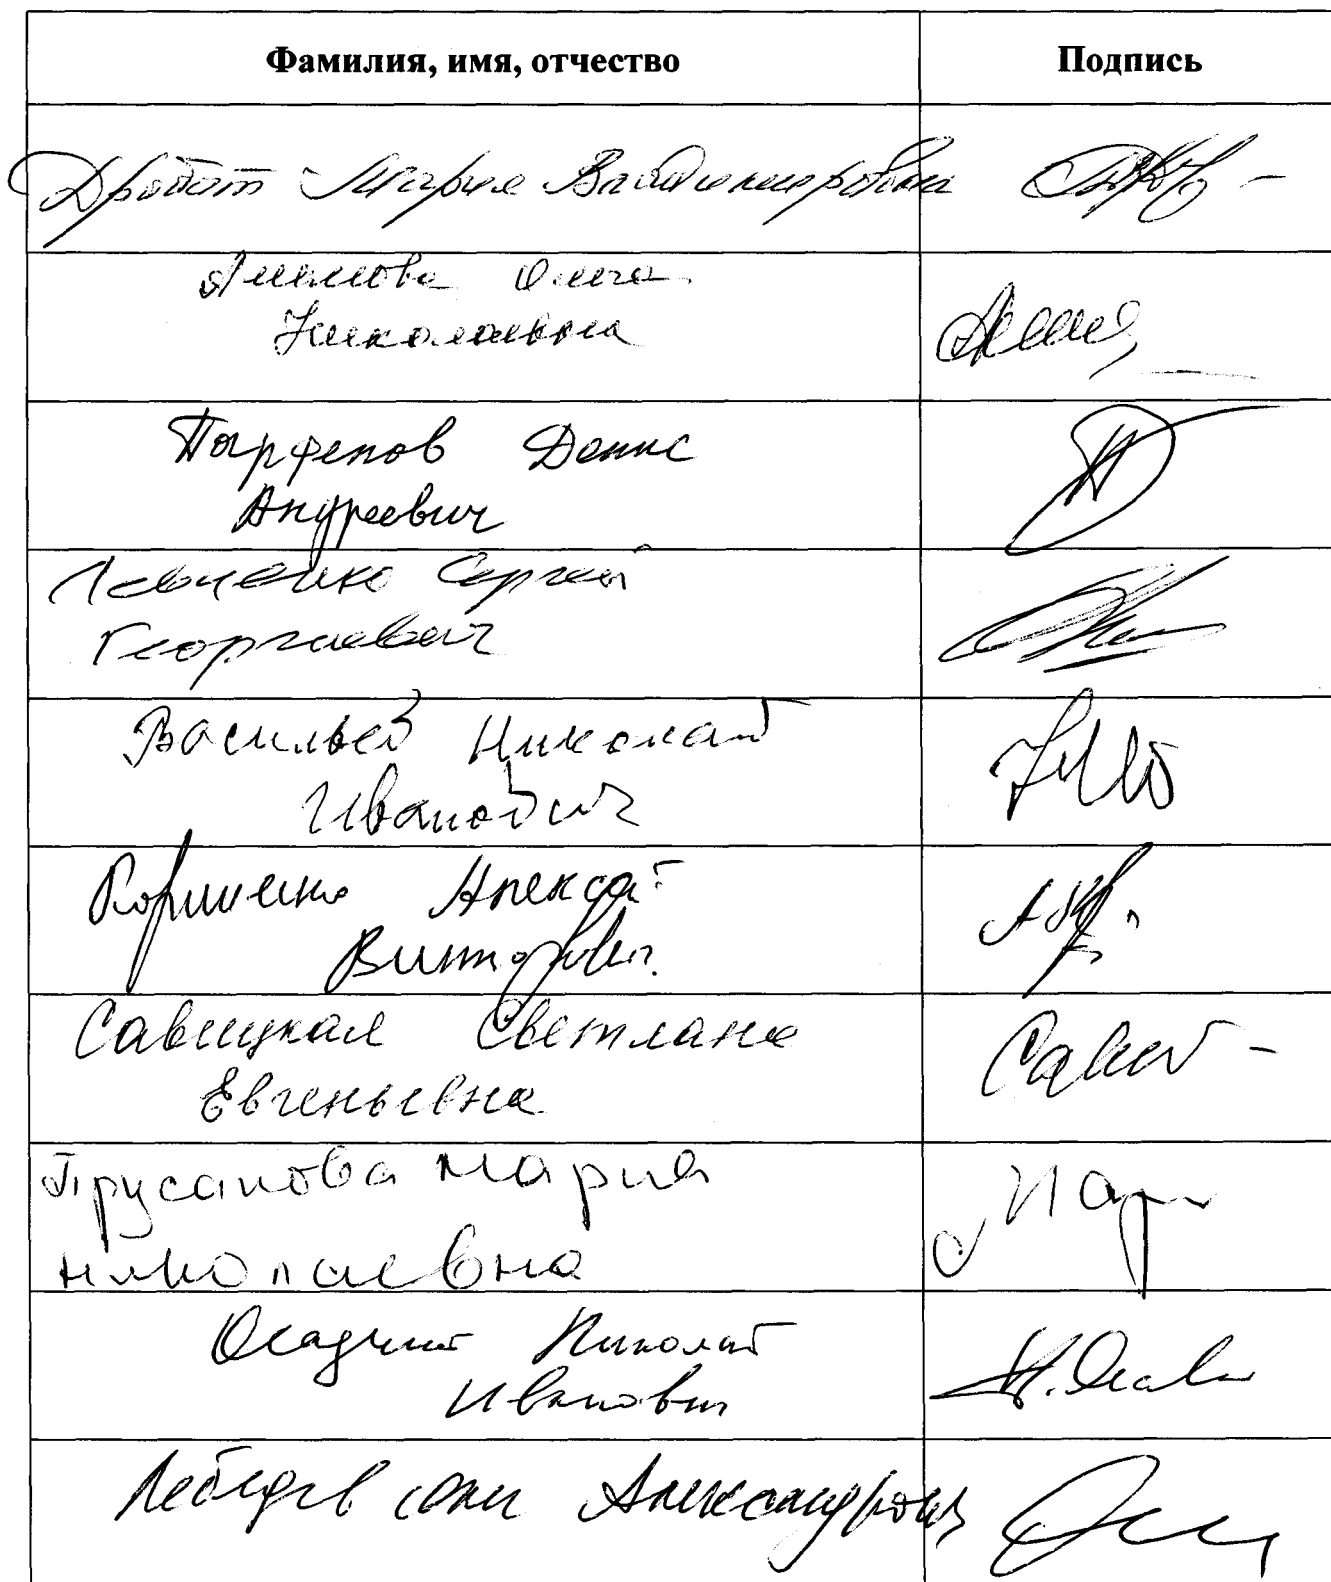 Фамилия, имя, отчество Подпись
Дробот Мария Владимировна
Алимова Ольга
Николаевна
Парфенов Денис
Андреевич
Левченко Сергей
Георгиевич
Васильев Николай
Иванович
Корниенко Алексей
Викторович
Савицкая Светлана
Евгеньевна
Прусакова Мария
Николаевна
Осадчий Николай
Иванович
Лебедев Олег Александрович